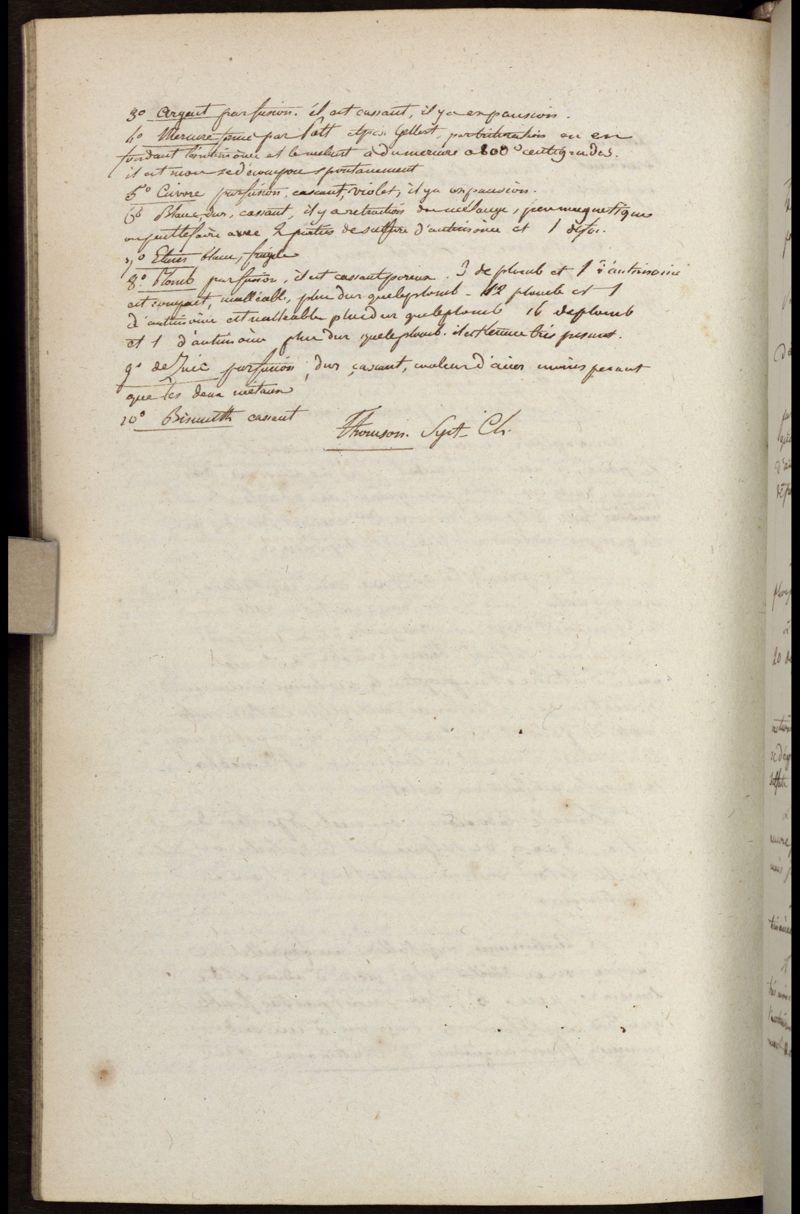 3° argent par fusion. il est cassant, il y a expansion.
4° Mercure par Pott et par Gellert, par trituration ou en
fondant l'antimoine et le melant à du mercure a 800° centigrades.
il est mou se decompose spontanement
5° Cuivre par fusion, cassant, violet, il y a expansion.
6° Blanc, dur, cassant, il y a retraction du mélange, peu magnetique
on peut le faire avec 2 parties de sulfure d'antimoine et 1 de fer.
7° Etain blanc, fragile
8° Plomb par fusion, il est cassant poreux. 3 de plomb et 1 d'antimoine
est compact, malléable, plus dur que le plomb - 12 plomb et 1
d'antimoine est malleable plus dur que le plomb 16 de plomb
et 1 d'antimoine plus dur que le plomb. il est tenace très pesant.
9° de Zinc par fusion, dur, cassant, couleur d'acier moins pesant
que les deux métaux
10° Bismuth cassant
Thomson. Syst. Ch.